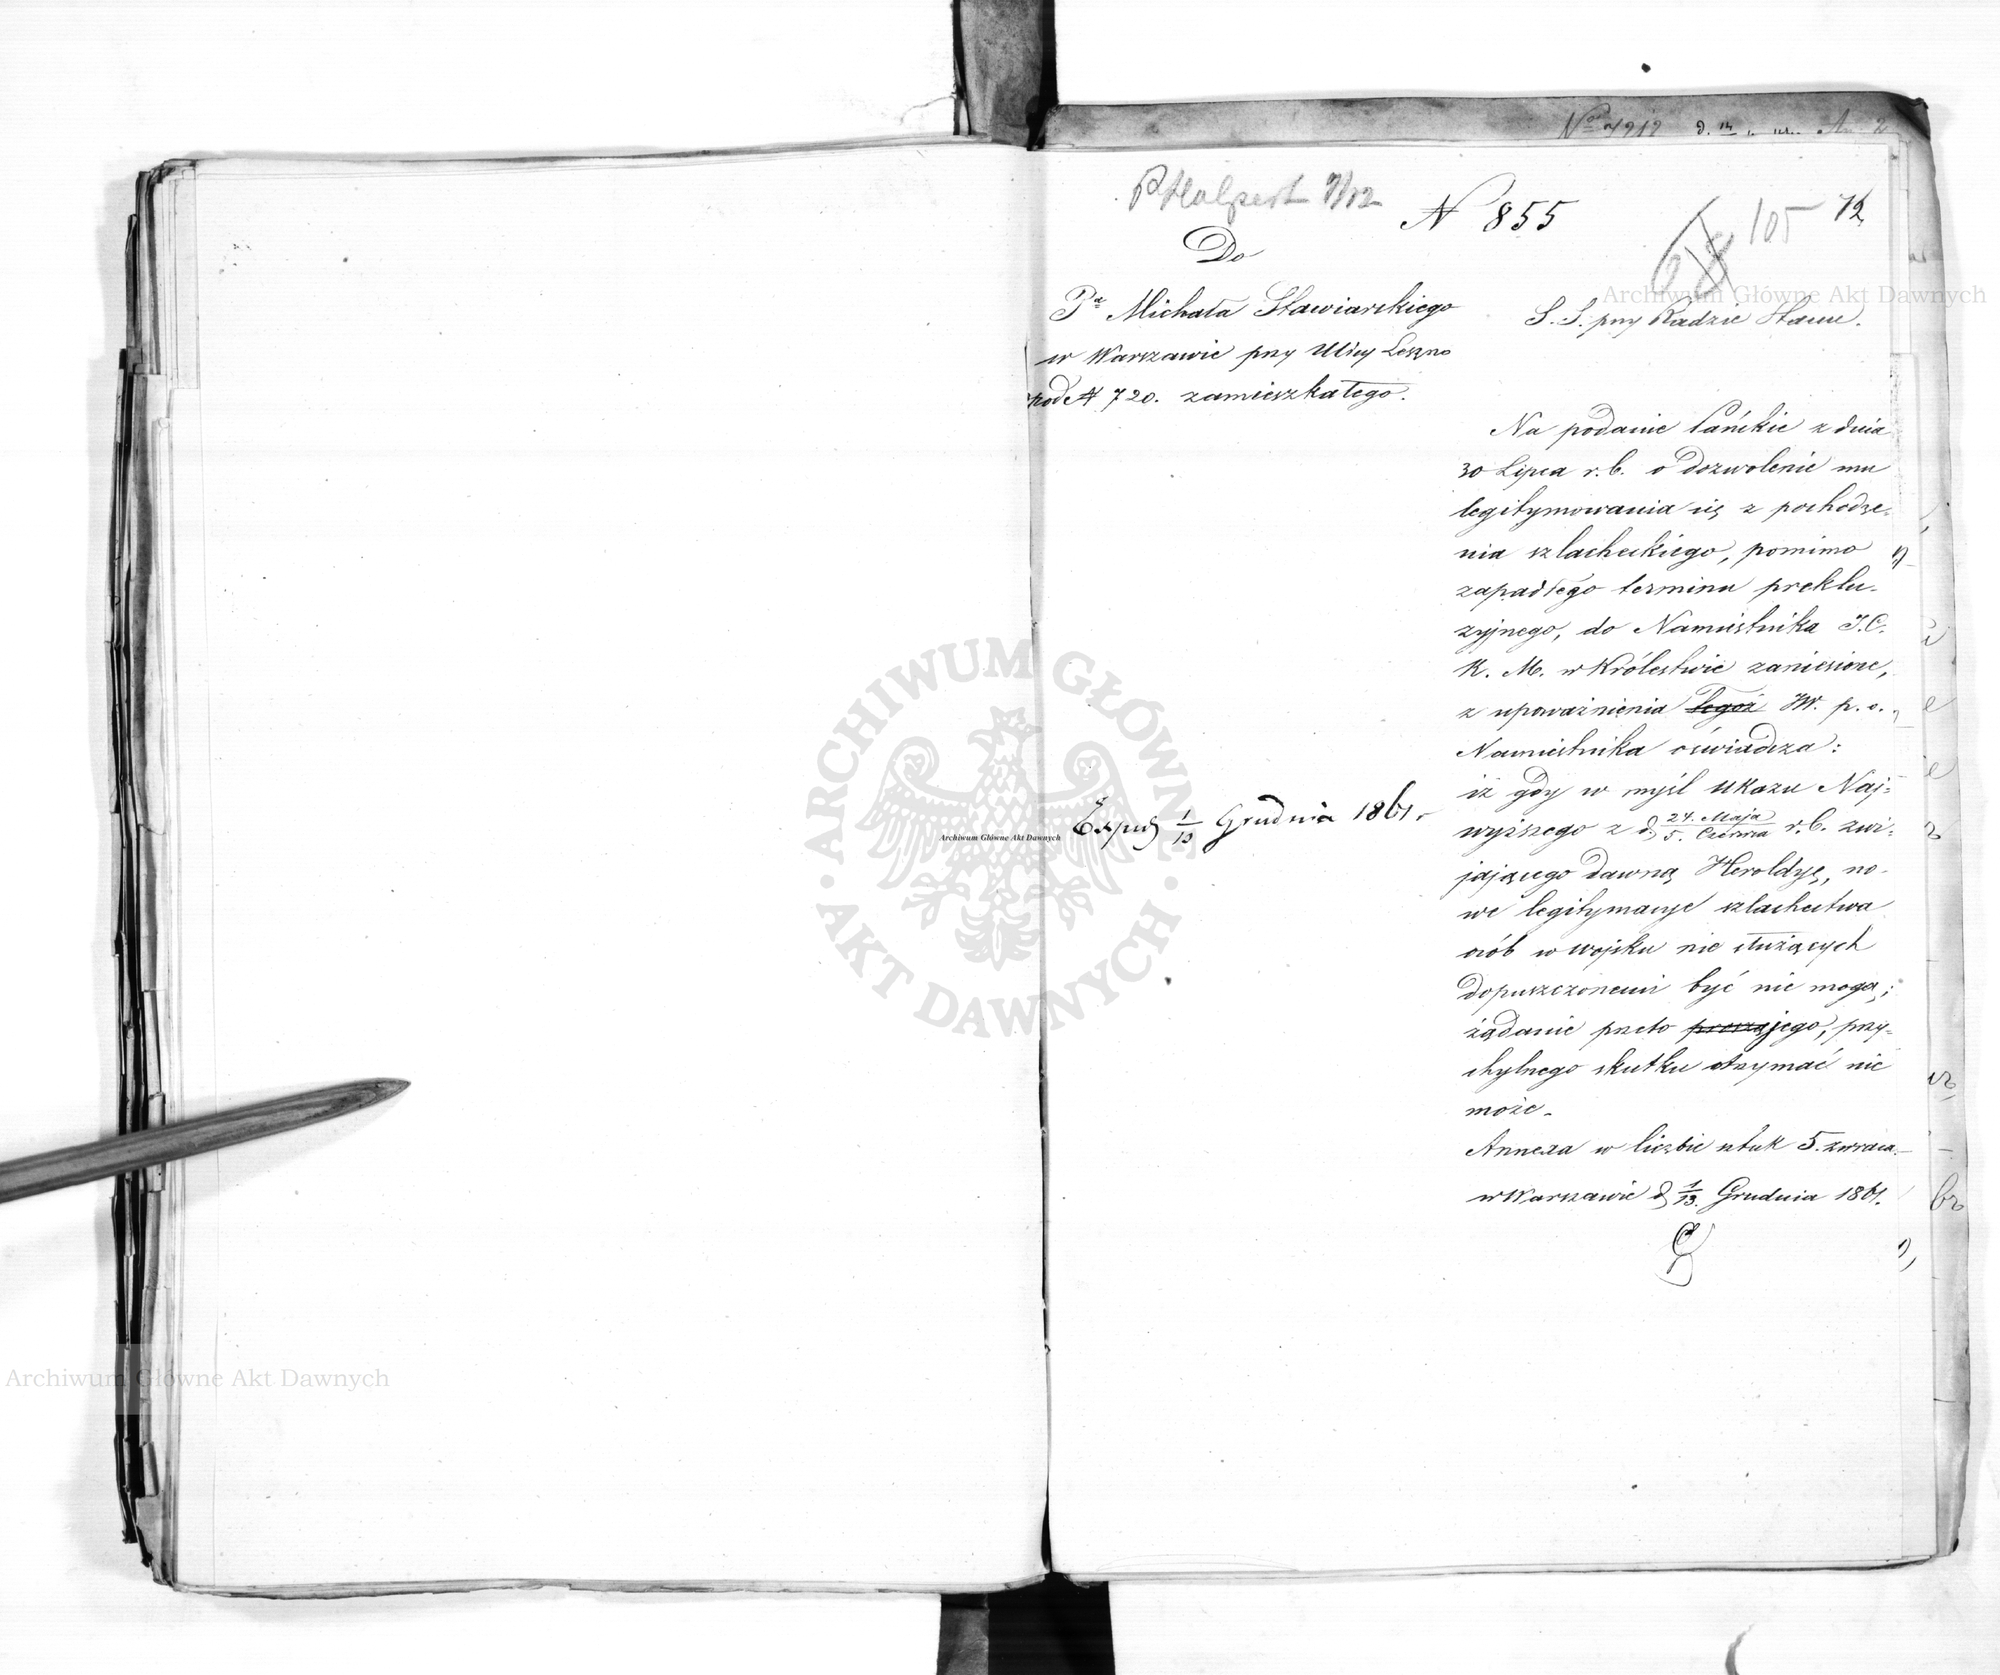 P Halpert 7/12
N 855
105 72
68
Do
Pa Michała Sławiarskiego
w Warszawie przy Ulicy Leszno
pod N 720. zamieszkałego.
S. S. przy Radzie Stanu.
Na podanie Pańskie z dnia
30 Lipca r. b. o dozwolenie mu
legitymowania się z pochodze-
nia szlacheckiego, pomimo
zapadłego terminu preklu-
zyjnego, do Namiestnika J. C.
K. M. w Królestwie zaniesione,
z upoważnienia tegoż JW. p. o.
Namiestnika oświadcza:
iż gdy w myśl ukazu Naj-
wyższego z d. 24. Maja / 5. Czerwca r. b. zwi-
jającego dawną Heroldyę, no-
we legitymacye szlachectwa
osób w wojsku nie służących
dopuszczonemi być nie mogą;
żądanie przeto jego, przy-
chylnego skutku otrzymać nie
może.
Annexa w liczbie sztuk 5. zwraca.
w Warszawie d. 1/13. Grudnia 1861.
Exped 1/13 Grudnia 1861.
Archiwum Główne Akt Dawnych
Archiwum Główne Akt Dawnych
Archiwum Główne Akt Dawnych
ARCHIWUM GŁÓWNE · AKT DAWNYCH ·